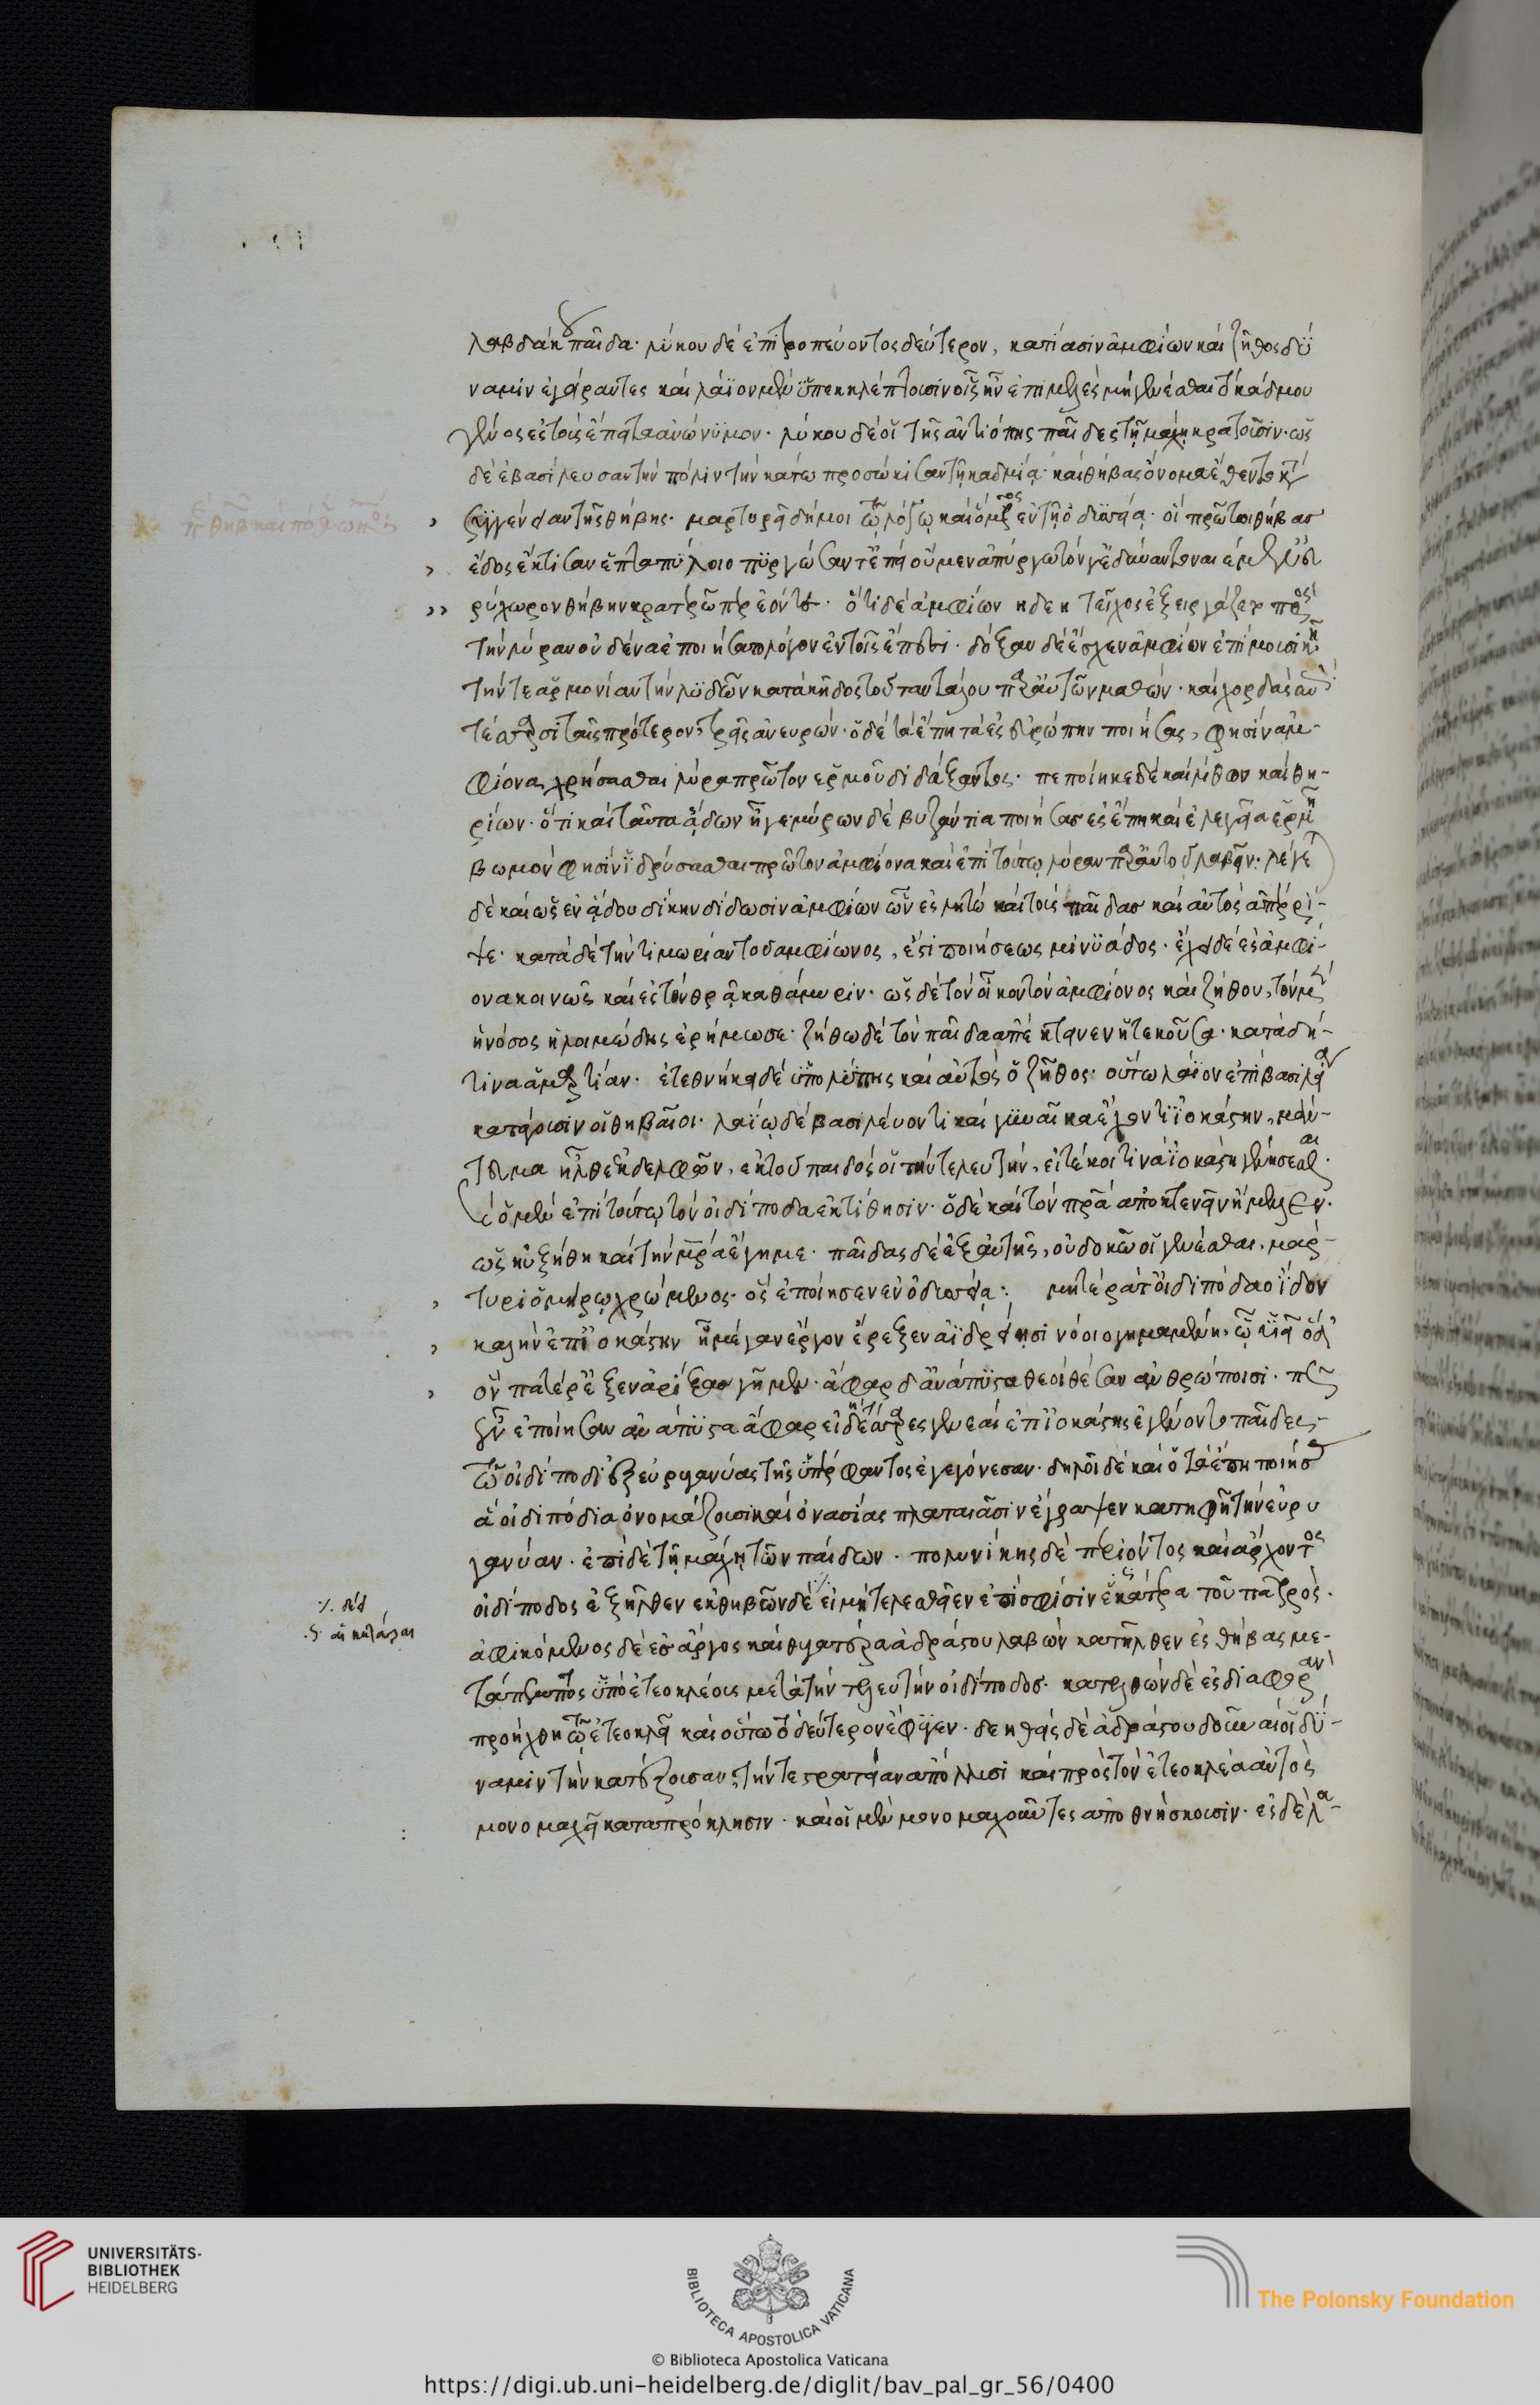 λαβδάκου παῖδα· λύκου δὲ ἐπιτροπεύοντος δεύτερον, κατίασιν ἀμφίων καὶ ζῆθος δύ
ναμιν ἀγείραντες καὶ λάϊον μὲν ὑπεκκλέπτουσιν οἷς ἦν ἐπιμελὲς μὴ γενέσθαι τὸ κάδμου
γένος ἐς τοὺς ἔπειτα ἀνώνυμον· λύκου δὲ οἱ τῆς ἀντιόπης παῖδες τῇ μάχῃ κρατοῦσιν· ὡς
δὲ ἐβασίλευσαν τὴν πόλιν τὴν κάτω προσώκισαν τῇ καδμείᾳ· καὶ θήβας ὄνομα ἔθεντο κατὰ
συγγένειαν τῆς θήβης· μαρτυρεῖ δή μοι τῷ λόγῳ καὶ ὅμηρος ἐν τῇ ὀδυσσείᾳ· οἳ πρῶτοι θήβας
ἕδος ἔκτισαν ἑπταπύλοιο πύργωσάν τ' ἐπεὶ οὐ μὲν ἀπύργωτόν γ' ἐδύναντο ναιέμεν εὐ
ρύχωρον θήβην κρατερώ περ ἐόντε· ὅτι δὲ ἀμφίων ᾖδε κ τεῖχος ἐξειργάζετο πρὸς
τὴν λύραν οὐδένα ἐποιήσατο λόγον ἐν τοῖς ἔπεσι· δόξαν δὲ ἔσχεν ἀμφίων ἐπὶ μουσικῇ
τήν τε ἁρμονίαν τὴν λυδῶν κατὰ κῆδος τοῦ ταντάλου παρ' αὐτῶν μαθών· καὶ χορδὰς
τέσσαρσι ταῖς πρότερον, τρεῖς ἀνευρών· ὁ δὲ τὰ ἔπη τὰ ἐς εὐρώπην ποιήσας, φησὶν ἀμ-
φίονα χρήσασθαι λύρᾳ πρῶτον ἑρμοῦ διδάξαντος· πεποίηκε δὲ καὶ λίθων καὶ θη-
ρίων· ὅτι καὶ ταῦτα ᾄδων ἦγε μύρων δὲ βυζαντία ποιήσασα ἔπη καὶ ἐλεγεῖα ἑρμῇ
βωμόν φησιν ἱδρύσασθαι πρῶτον ἀμφίονα καὶ ἐπὶ τούτῳ λύραν παρ' αὐτοῦ λαβεῖν· λέγε
δὲ καὶ ὡς ἐν ᾅδου δίκην δίδωσιν ἀμφίων ὧν ἐς λητὼ καὶ τοὺς παῖδας καὶ αὐτὸς ἀπέρρι-
ψε· κατὰ δὲ τὴν τιμωρίαν τοῦ ἀμφίωνος, ἔστι ποιήσεως μινυάδος· ἔχει δὲ ἐς ἀμφί-
ονα κοινῶς καὶ ἐς τὸν θρᾷκα θάμυριν· ὡς δὲ τὸν οἶκον τὸν ἀμφίονος καὶ ζήθου, τὸν μὲν
ἡ νόσος ἡ λοιμώδης ἐρήμωσε· ζήθῳ δὲ τὸν παῖδα ἀπέκτεινεν ἡ τεκοῦσα· κατὰ δή
τινα ἁμαρτίαν· ἐτεθνήκει δὲ ὑπὸ λύπης καὶ αὐτὸς ὁ ζῆθος· οὕτω λάϊον ἐπὶ βασιλείαν
κατάγουσιν οἱ θηβαῖοι· λαΐῳ δὲ βασιλεύοντι καὶ γυναῖκα ἔχοντι ἰοκάστην, μάν-
τευμα ἦλθεν ἐκ δελφῶν, ἐκ τοῦ παιδός οἱ τὴν τελευτὴν, εἰ τέκοι τινὰ ἰοκάστη γενήσεσθαι·
ὁ μὲν ἐπὶ τούτῳ τὸν οἰδίποδα ἐκτίθησιν· ὁ δὲ καὶ τὸν πατέρα ἀποκτενεῖν ἤμελλεν.
ὡς ηὐξήθη καὶ τὴν μητέρα ἔγημε· παῖδας δὲ ἐξ αὐτῆς, οὐ δοκῶ οἱ γενέσθαι, μάρ-
τυρι ὁμήρῳ χρώμενος· ὃς ἐποίησεν ἐν ὀδυσσείᾳ: μητέρα τ' οἰδιπόδαο ἴδον
καλὴν ἐπϊοκάστην ἣ μέγαν ἔργον ἔρεξεν ἀϊδρείῃσι νόοιο γημαμένη, ᾧ υἱεῖ ὁ δ'
ὃν πατέρ' ἐξεναρίξας γῆμεν· ἄφαρ δ' ἀνάπυστα θεοὶ θέσαν ἀνθρώποισι· πῶς
οὖν ἐποίησαν ἀνάπυστα ἄφαρ εἰ δὴ τέσσαρες γενεαὶ ἐπϊοκάστης ἐγένοντο παῖδες,
τῷ οἰδίποδι ἐξ εὐρυγανείας τῆς ὑπέρφαντος ἐγεγόνεσαν· δηλοῖ δὲ καὶ ὁ τὰ ἔπη ποιήσας
ἃ οἰδιπόδια ὀνομάζουσι καὶ ὀνασίας πλαταιᾶσιν ἔγραψεν κατηφῆ τὴν εὐρυ
γανείαν· ἐπὶ δὲ τῇ μάχῃ τῶν παίδων· πολυνίκης δὲ περιόντος καὶ ἄρχοντος
οἰδίποδος ἐξῆλθεν ἐκ θηβῶν δέει μὴ τελεσθεῖεν ἐπὶ σφίσιν ἑκάτερα τοῦ πατρός.
ἀφικόμενος δὲ ἐς ἄργος καὶ θυγατέρα ἀδράστου λαβὼν κατῆλθεν ἐς θήβας με-
τάπεμπτος ὑπὸ ἐτεοκλέους μετὰ τὴν τελευτὴν οἰδίποδος· κατελθὼν δὲ ἐς διαφορὰν
προήχθη τῷ ἐτεοκλεῖ καὶ οὕτω τὸ δεύτερον ἔφυγεν· δεηθεὶς δὲ ἀδράστου δοῦναί οἱ δύ-
ναμιν τὴν κατάξουσαν, τήν τε στρατείαν ἀπόλλυσι καὶ πρὸς τὸν ἐτεοκλέα αὐτὸς
μονομαχεῖ κατὰ πρόκλησιν· καὶ οἱ μὲν μονομαχοῦντες ἀποθνήσκουσιν· ἐς δὲ λα-
UNIVERSITÄTS-
BIBLIOTHEK
HEIDELBERG
BIBLIOTECA APOSTOLICA VATICANA
The Polonsky Foundation
© Biblioteca Apostolica Vaticana
https://digi.ub.uni-heidelberg.de/diglit/bav_pal_gr_56/0400